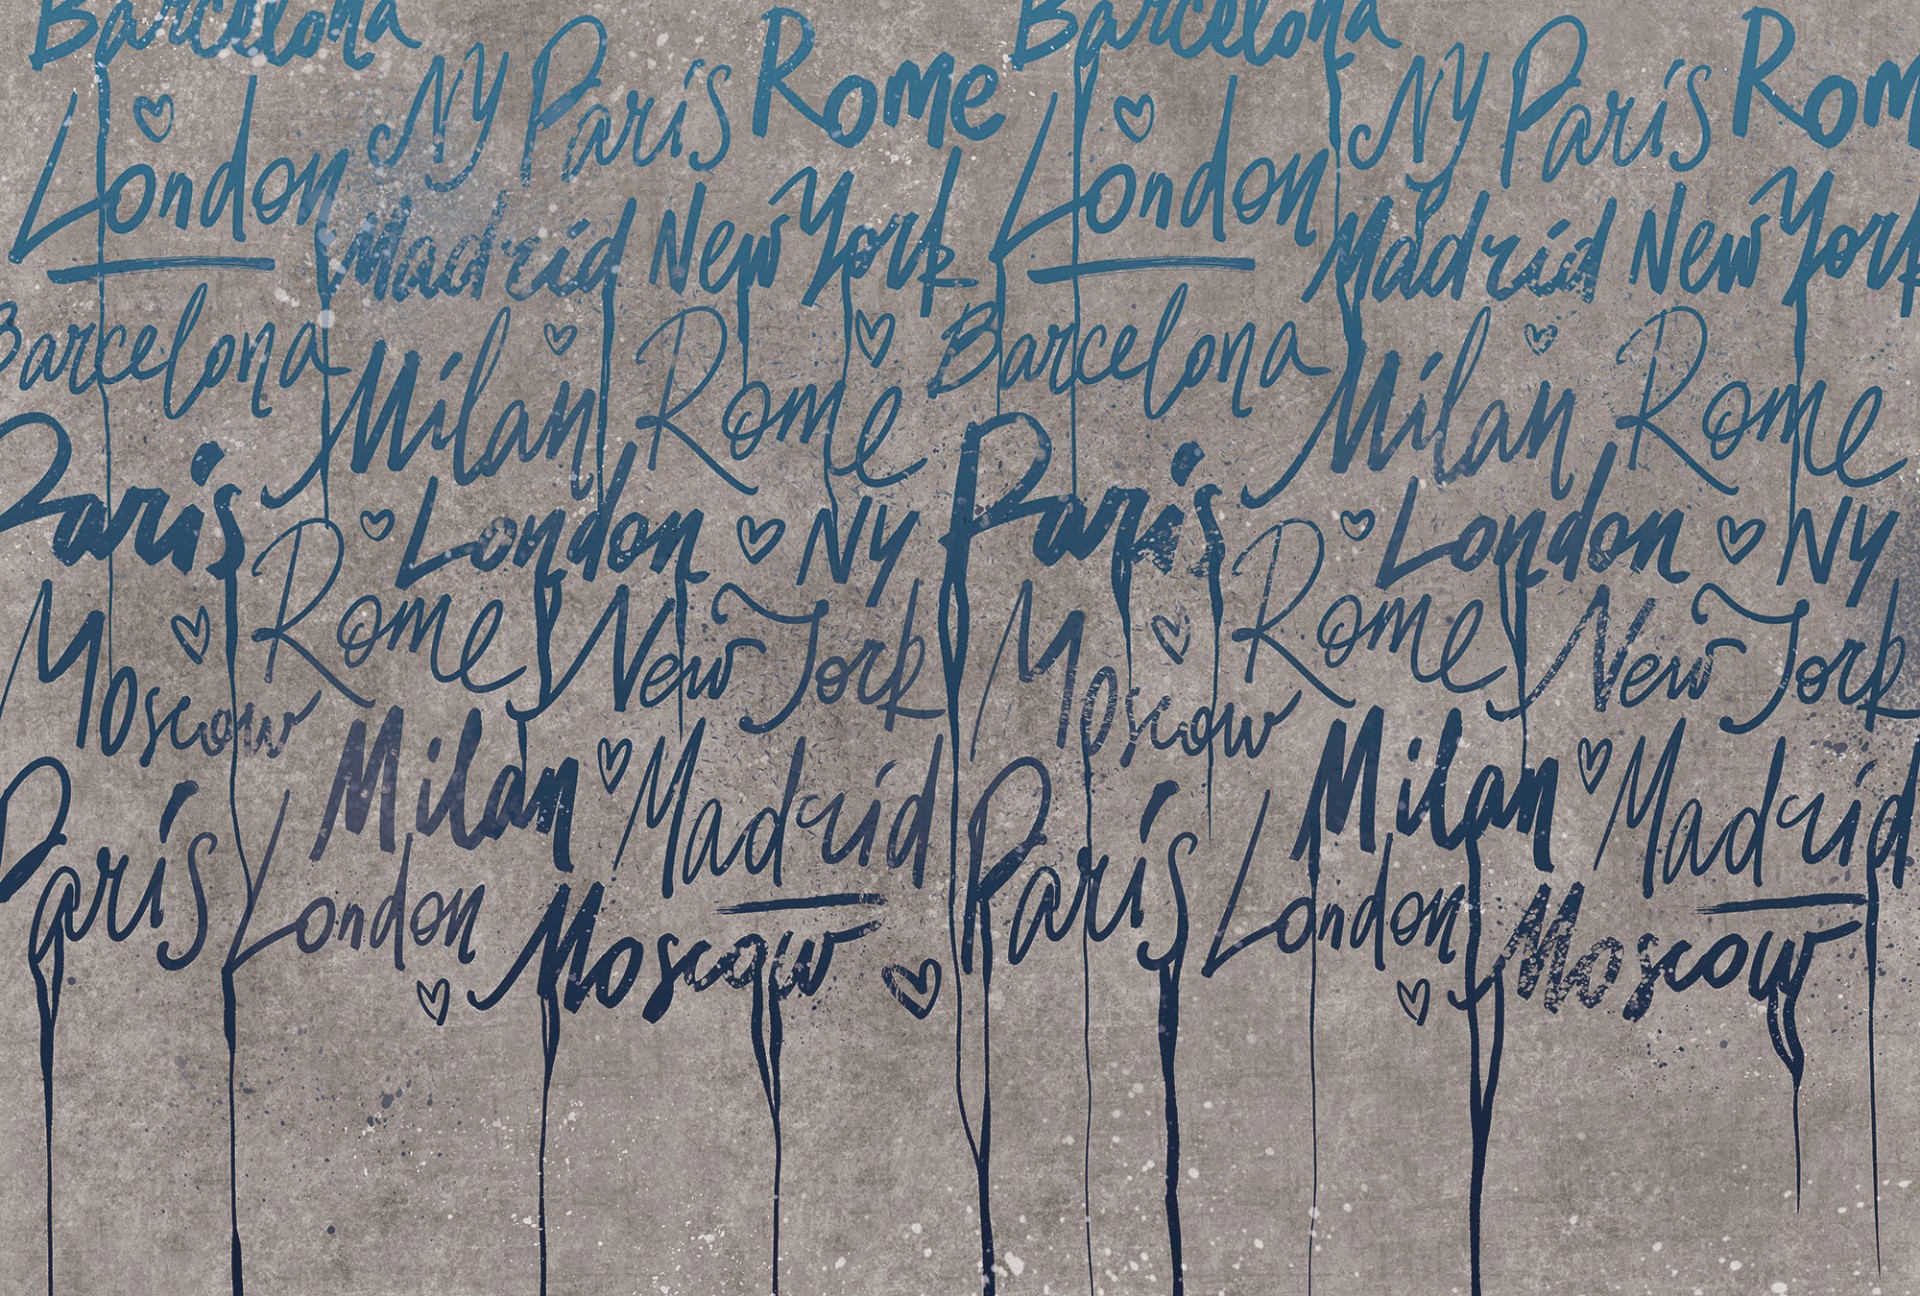 Barcelona Barcelona
London NY París Rome London NY París Rom
Madrid New York Madrid New York
Barcelona Milan Rome Barcelona Milan Rome
París London NY París London NY
Moscow Rome New York Moscow Rome New York
París Milan Madrid París Milan Madrid
London Moscow London Moscow